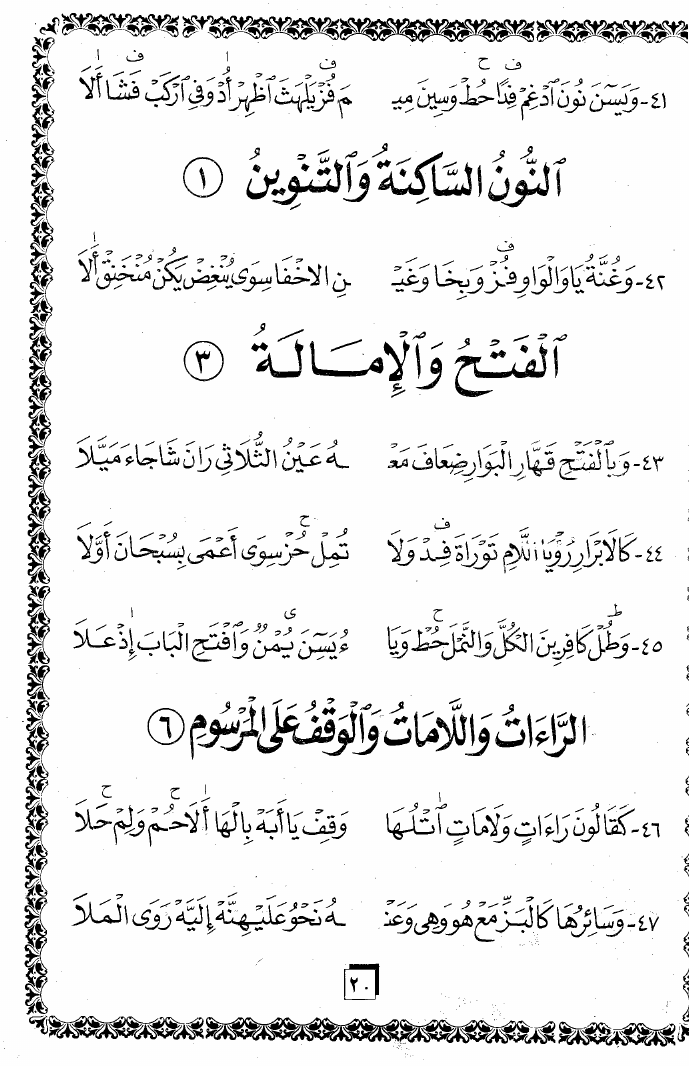 ٤١- وَيَسۤنَ نُونَ ٱدْغِمْ فِدًا حُطْ وَسِينَ مِيـ مَ فُزْ يَلْهَثَ ٱظْهِرْ أُدْ وَفِي ٱرْكَبْ فَشَا أَلَا
ٱلنُّونُ السَّاكِنَةُ وَالتَّنْوِينُ (١)
٤٢- وَغُنَّةُ يَا وَالْوَاوِ فُزْ وَبِخَا وَغَيْـ ـنِ الاخْفَا سِوَى يُنْغِضْ يَكُنْ مُنْخَنِقْ أَلَا
ٱلْفَتْحُ وَٱلْإِمَالَةُ (٣)
٤٣- وَبِالْفَتْحِ قَهَّارِ الْبَوَارِ ضِعَافَ مَعْـ ـهُ عَيْنُ الثُّلَاثِي رَانَ شَا جَاءَ مَيَّلَا
٤٤- كَالَابْرَارِ رُؤْيَا اللَّامِ تَوْرَاةَ فِدْ وَلَا تُمِلْ حُزْ سِوَى أَعْمَى بِسُبْحَانَ أَوَّلَا
٤٥- وَطُلْ كَافِرِينَ الْكُلَّ وَالنَّمْلَ حُطْ وَيَا ءُ يَسۤنَ يُمْنٌ وَافْتَحِ الْبَابَ إِذْ عَلَا
الرَّاءَاتُ وَاللَّامَاتُ وَٱلْوَقْفُ عَلَى الْمَرْسُومِ (٦)
٤٦- كَقَالُونَ رَاءَاتٍ وَلَامَاتٍ ٱتْلُهَا وَقِفْ يَا أَبَهْ بِالْهَا أَلَا حُمْ وَلِمْ حَلَا
٤٧- وَسَائِرُهَا كَالْبَزِّ مَعْ هُوَ وَهِي وَعَنْـ ـهُ نَحْوُ عَلَيْهِنَّهْ إِلَيَّهْ رَوَى الْمَلَا
٢٠